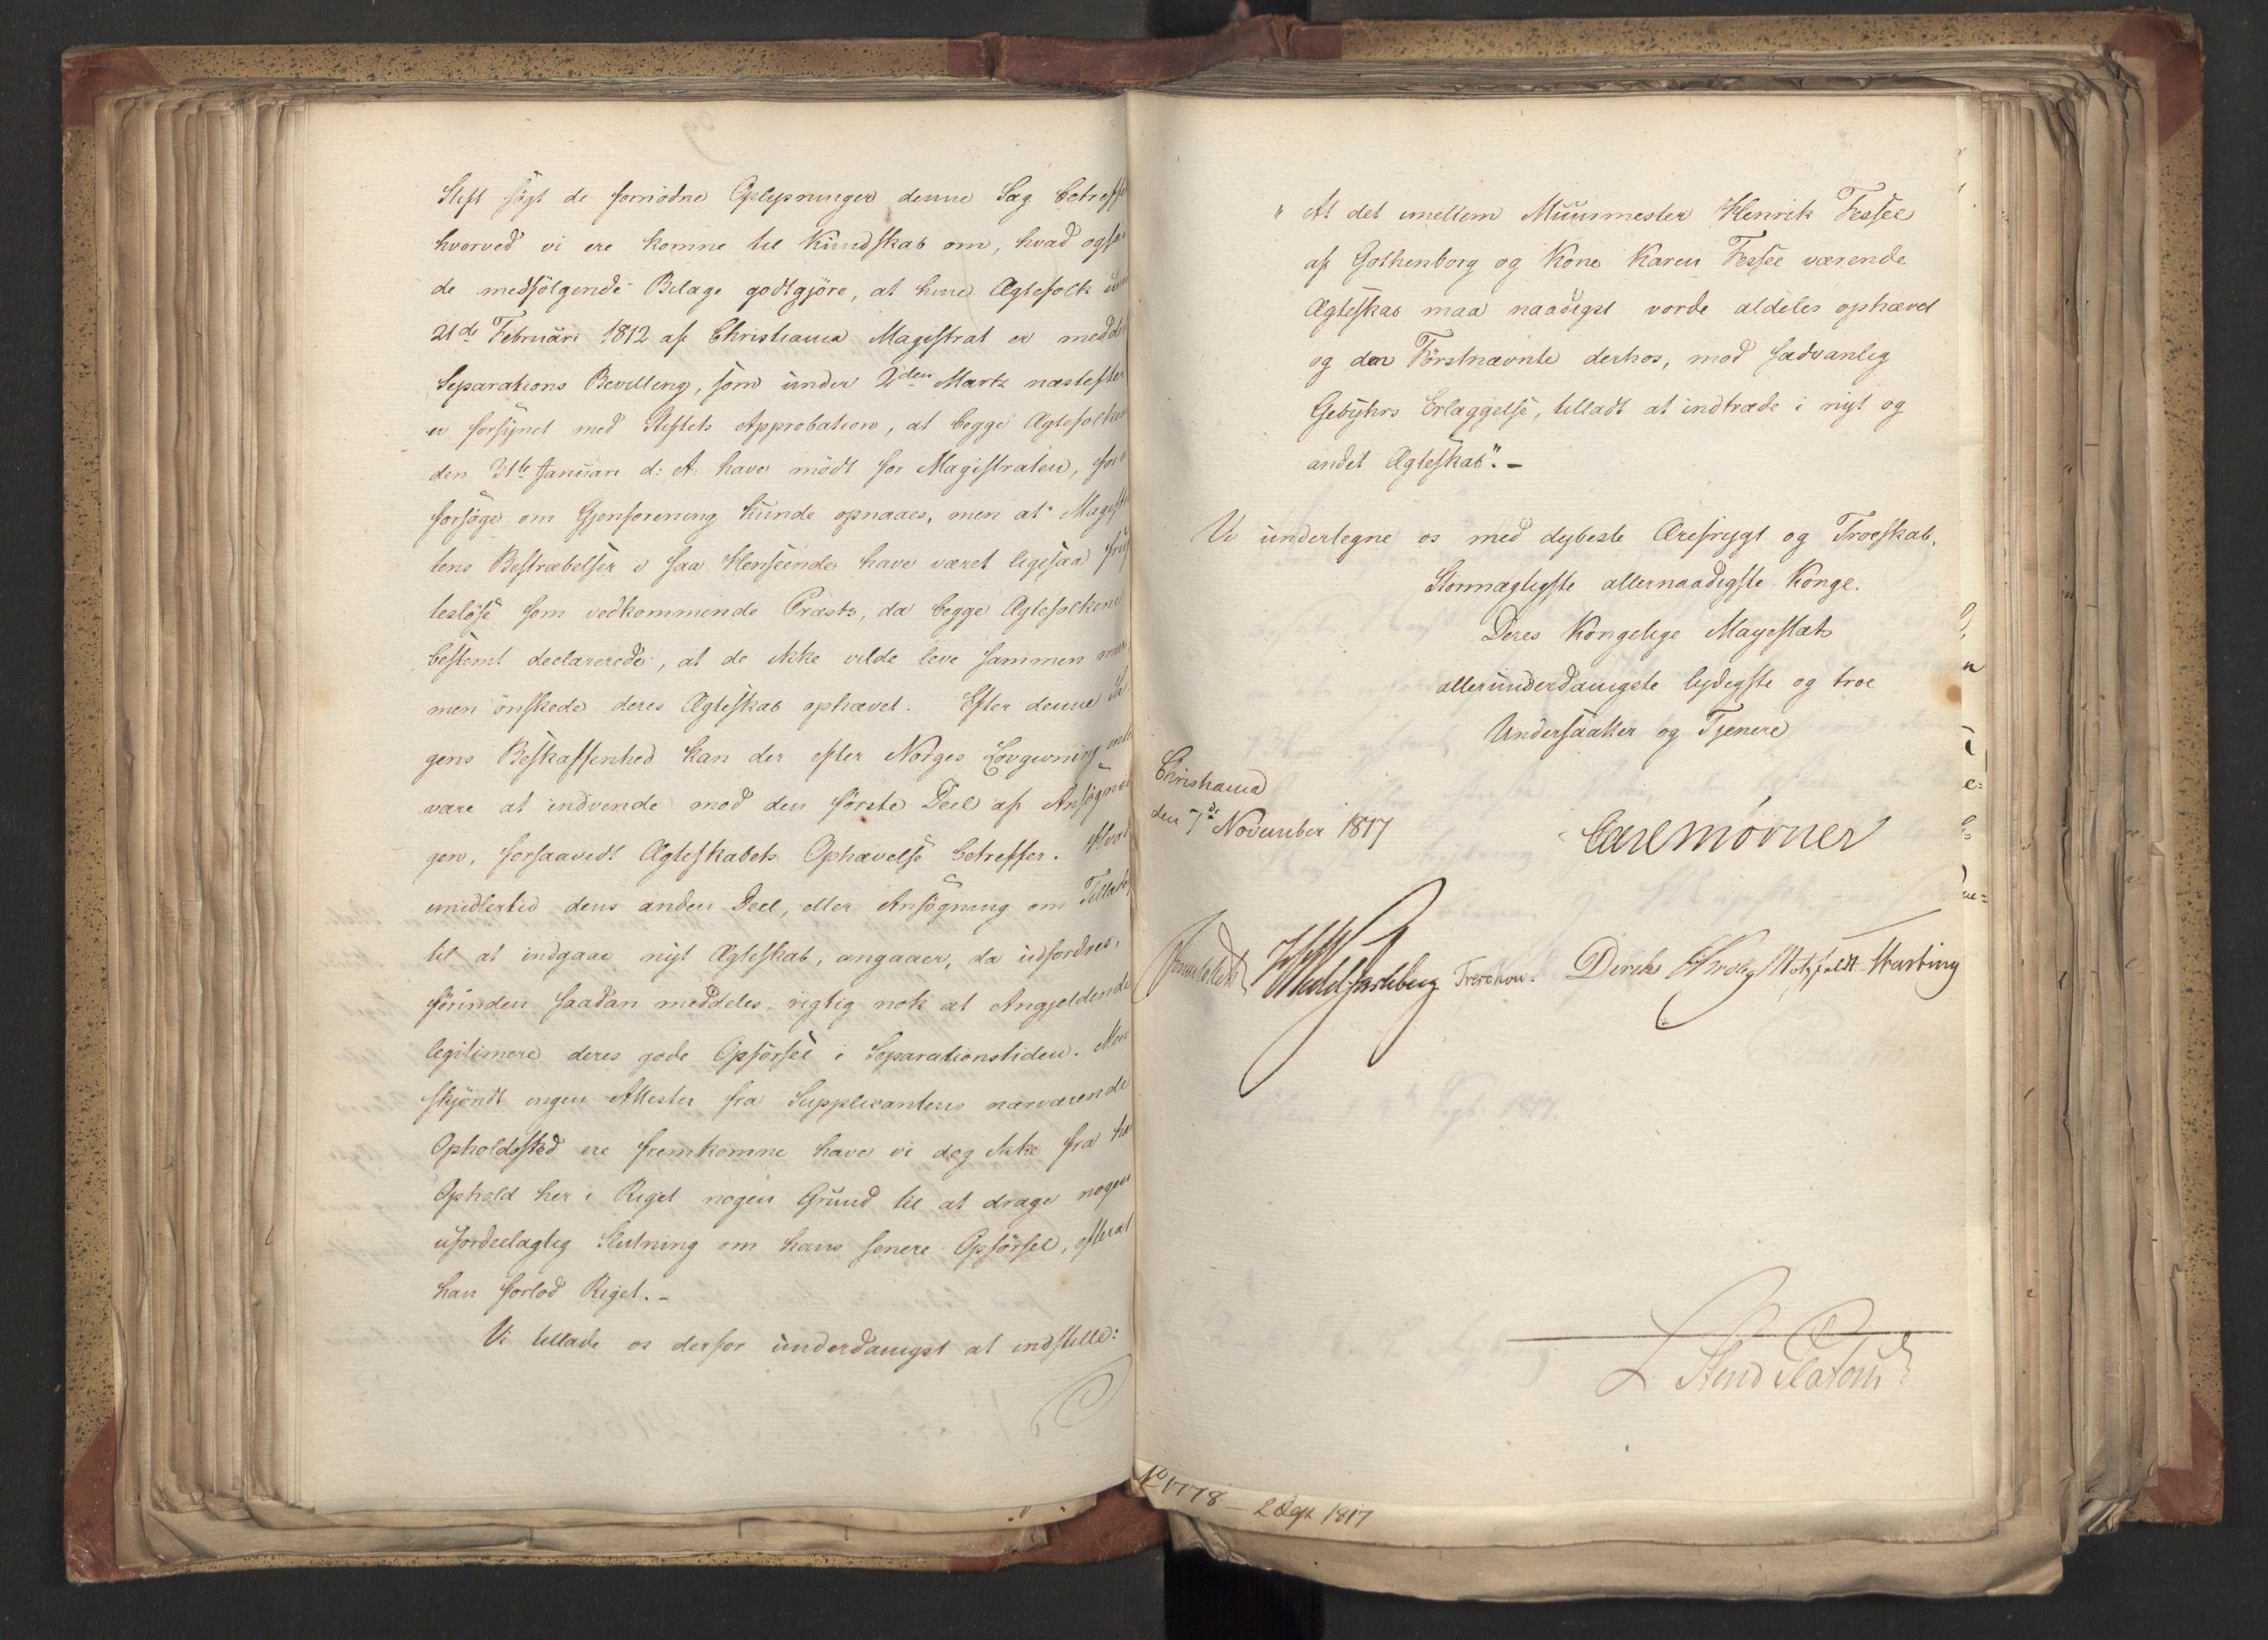 Stift søgt de fornödne Oplysninger denne Sag betreff
hvorved vi ere komne til Kundskab om, hvad ogsaa
de medfölgende Bilage godtgjöre, at hine Ægtefolk under
21de Februari 1812 af Christiania Magistrat er meddelt
Separations Bevilling, som under 2den Martz næstefter
er forsynet med Stiftets Approbation, at begge Ægtefolkene
den 31te Januari d: A: have mödt for Magistraten, for
forsöge om Gjenforening kunde opnaaes, men at Magistra
tens Bestræbelser i saa Henseende have været ligesaa frug
teslöse som vedkommende Præsts, da begge Ægtefolkene
bestemt declarerede, at de ikke vilde leve sammen mer
men önskede deres Ægteskab ophævet. Efter denne Sa
gens Beskaffenhed kan der efter Norges Lovgivning intet
være at indvende mod den förste Deel af Ansögnin
gen, forsaavidt Ægteskabets Ophævelse betreffer. Hvad
imidlertid dens anden Deel, eller Ansögning om Tilladelse
til at indgaae nyt Ægteskab, angaaer, da udfordres,
förinden saadan meddeles, rigtig nok at Angjeldende
legitimere deres gode Opförsel i Separationstiden. Men
skjöndt ingen Attester fra Supplicantens nærværende
Opholdssted ere fremkomne have vi dog ikke fra hans
Ophold her i Riget nogen Grund til at drage nogen
ufordeelagtig Slutning om hans senere Opförsel, efterat
han forlod Riget. -
Vi tillade os derfor underdanigst at indstille:
" At det imellem Muurmester Henrik Fessel
af Gothenborg og Kone Karen Fessel værende
Ægteskab maa naadigst vorde aldeles ophævet
og den Förstnævnte derhos, mod sædvanlig
Gebyhrs Erlæggelse, tilladt at indtræde i nyt og
andet Ægteskab". -
Vi undertegne os med dybeste Ærefrygt og Troeskab.
Stormægtigste allernaadigste Konge.
Deres Kongelige Mayestæts
allerunderdanigste lydigste og troe
Undersaatter og Tjenere
Christiania
den 7de November 1817
Carl Mörner
Sommerhielm Wedel Jarlsberg Treschow. Diriks C Krohg Motzfeldt Hasting
No 1778 - 2 Dept 1817